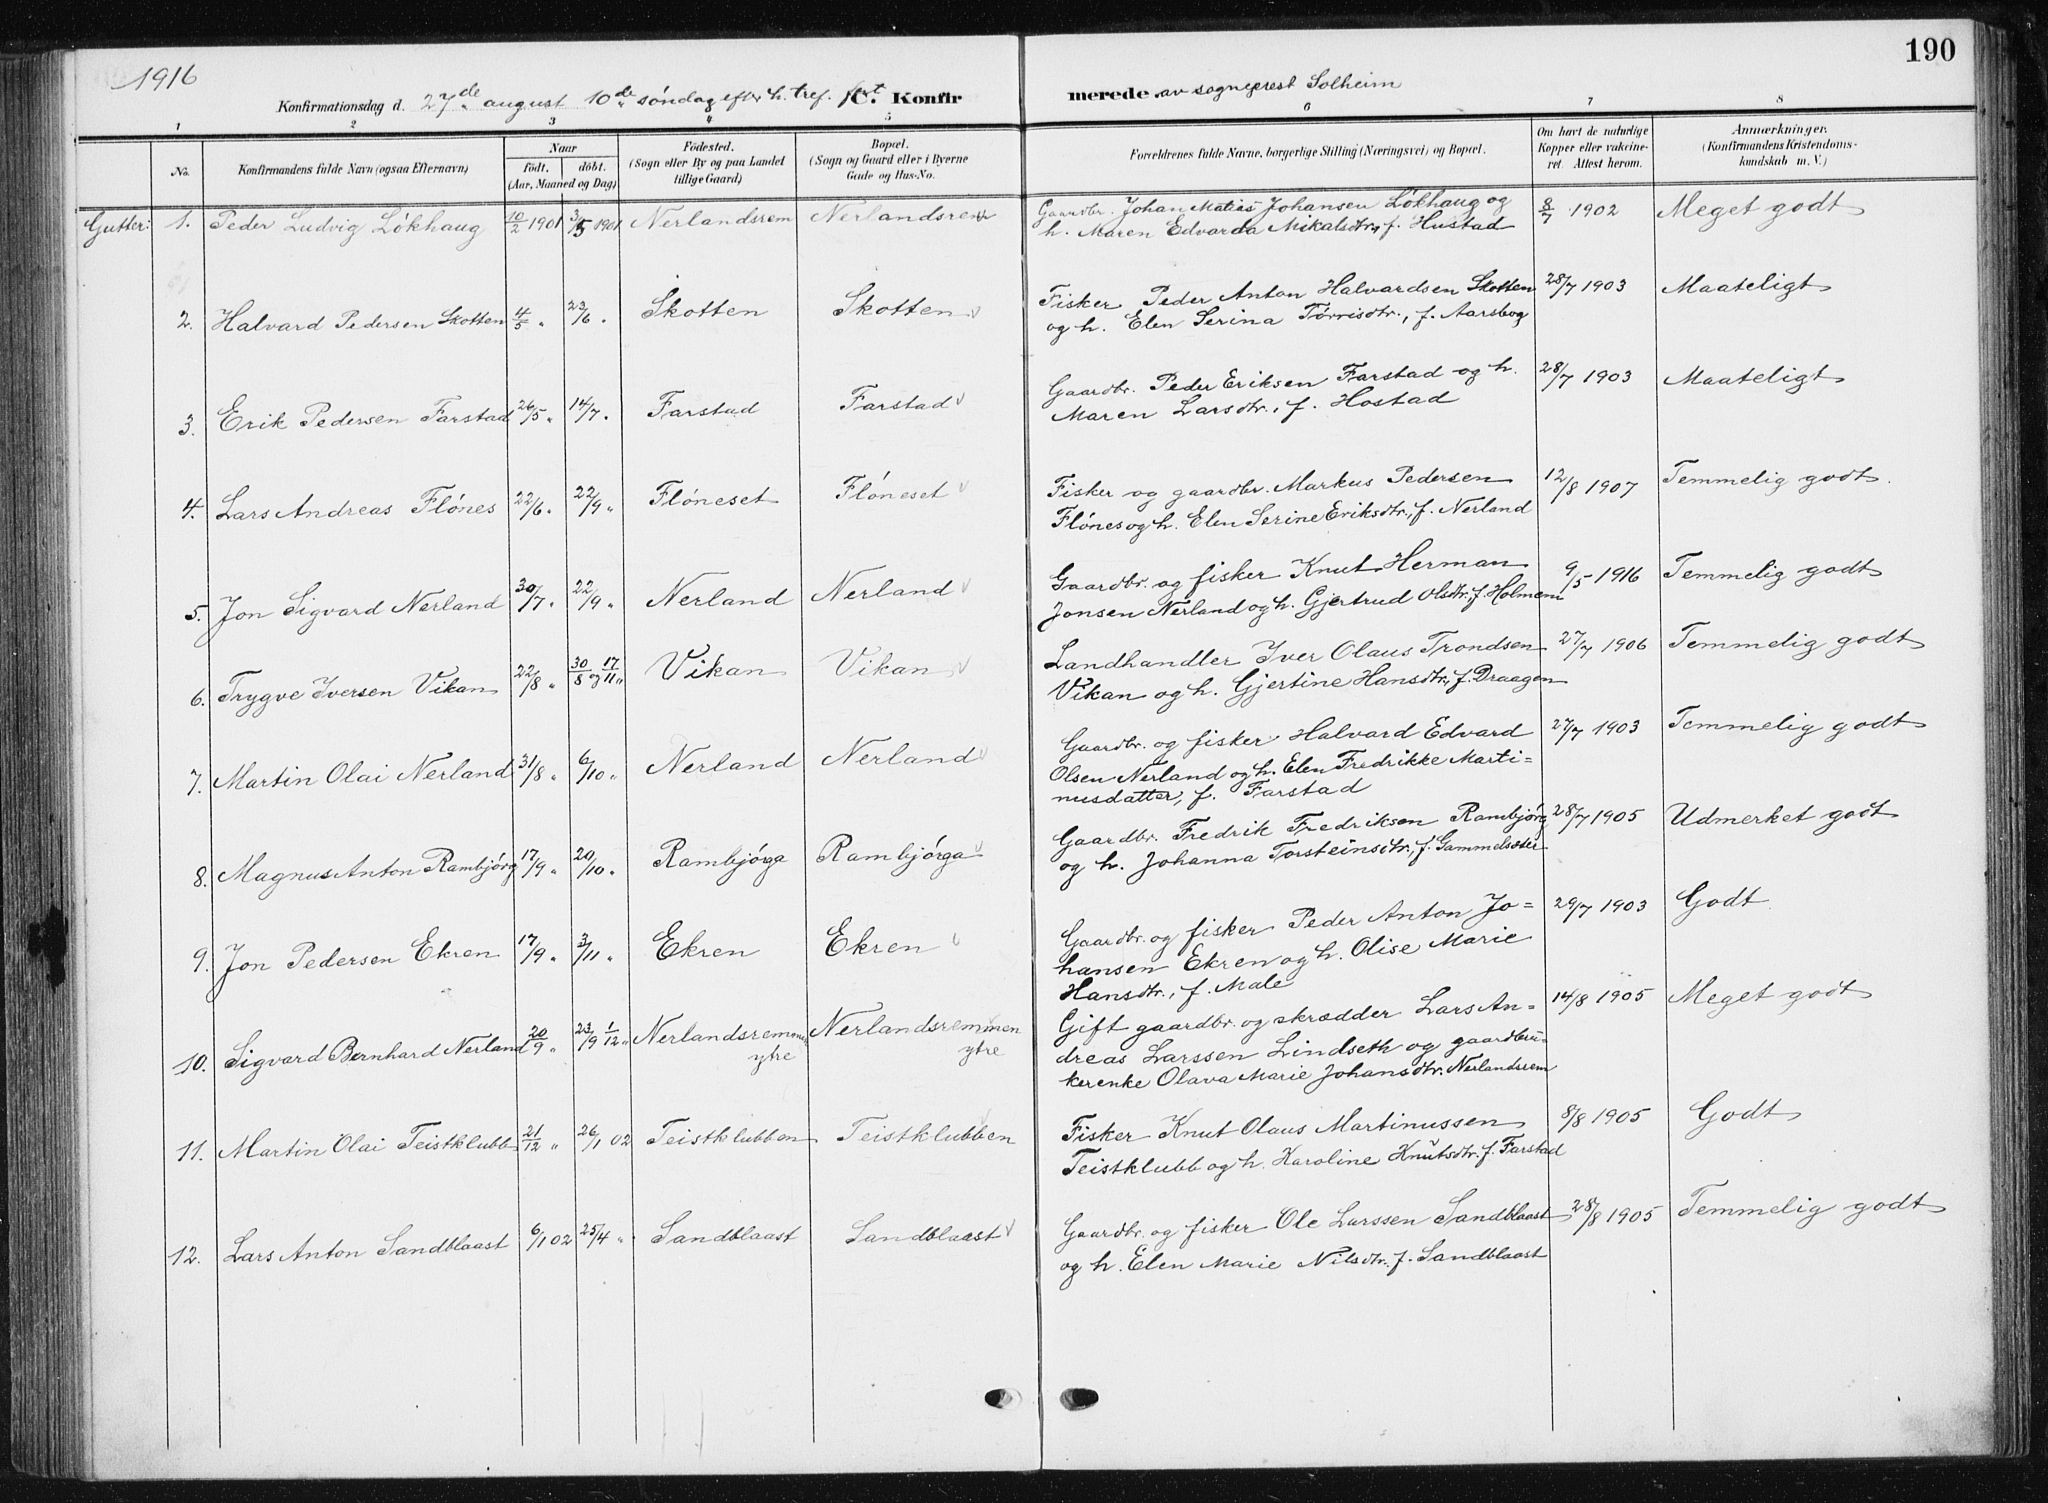 190
1916
Konfirmationsdag d. 27de august 10de søndag efter h. tref. fest C. Konfirmerede av sogneprest Solheim
1 2 3 4 5 6 7 8
No.
Konfirmandens fulde Navn (ogsaa Efternavn)
Naar
födt. döbt.
(Aar, Maaned og Dag)
Födested.
(Sogn eller By og paa Landet
tillige Gaard)
Bopæl.
(Sogn og Gaard eller i Byerne
Gade og Hus-No.
Forældrenes fulde Navne, borgerlige Stilling (Næringsvei) og Bopæl.
Om havt de naturlige
Kopper eller vakcine-
ret. Attest herom.
Anmærkninger.
(Konfirmandens Kristendoms-
kundskab m. V.)
Gutter:
1. Peder Ludvig Lökhaug 10/2 1901 3/5 1901 Nerlandsrem Nerlandsrem Gaardbr. Johan Matias Johansen Lökhaug og 8/7 1902 Meget godt
h. Maren Edvarda Mikalsdtr., f. Hustad
2. Halvard Pedersen Skotten 4/5 „ 23/6 „ Skotten Skotten Fisker Peder Anton Halvardsen Skotten 28/7 1903 Maateligt
og h. Elen Serina Tørrisdtr., f. Aarsbog
3. Erik Pedersen Farstad 26/5 „ 14/7 „ Farstad Farstad Gaardbr. Peder Eriksen Farstad og h. 28/7 1903 Maateligt
Maren Larsdtr., f. Hostad
4. Lars Andreas Flónes 22/6 „ 22/9 „ Flóneset Flóneset Fisker og gaardbr. Markus Pedersen 12/8 1907 Temmelig godt
Flónes og h. Elen Serine Eriksdtr., f. Nerland
5. Jon Sigvard Nerland 30/7 „ 22/9 „ Nerland Nerland Gaardbr. og fisker Knut Herman 9/5 1916 Temmelig godt
Jonsen Nerland og h. Gjertrud Olsdtr., f. Holmem
6. Trygve Iversen Vikan 22/8 „ 30/8 og 17/11 „ Vikan Vikan Landhandler Iver Olaus Trondsen 27/7 1906 Temmelig godt
Vikan og h. Gjertine Hansdtr., f. Draagen
7. Martin Olai Nerland 31/8 „ 6/10 „ Nerland Nerland Gaardbr. og fisker Halvard Edvard 27/7 1903 Temmelig godt
Olsen Nerland og h. Elen Fredrikke Marti=
nusdatter, f. Farstad
8. Magnus Anton Rambjörg 17/9 „ 20/10 „ Rambjórga Rambjórga Gaardbr. Fredrik Fredriksen Rambjórg 28/7 1905 Udmerket godt
og h. Johanna Torsteinsdtr., f. Gammelsæter
9. Jon Pedersen Ekren 17/9 „ 3/11 „ Ekren Ekren Gaardbr. og fisker Peder Anton Jo= 29/7 1903 Godt
hansen Ekren og h. Olise Marie
Hansdtr., f. Male
10. Sigvard Bernhard Nerland 20/9 „ 23/9 1/12 „ Nerlandsremmen Nerlandsremmen Gift gaardbr. og skrædder Lars An= 14/8 1905 Meget godt
ytre ytre dreas Larssen Lindseth og gaardbru=
kerenke Olava Marie Johansdtr. Nerlandsrem
11. Martin Olai Teistklubb 21/12 „ 26/1 02 Teistklubben Teistklubben Fisker Knut Olaus Martinussen 8/8 1905 Godt
Teistklubb og h. Karoline Knutsdtr. f. Farstad
12. Lars Anton Sandblaast 6/1 02 25/4 „ Sandblaast Sandblaast Gaardbr. og fisker Ole Larssen Sandblaast 28/8 1905 Temmelig godt
og h. Elen Marie Nilsdtr. f. Sandblaast